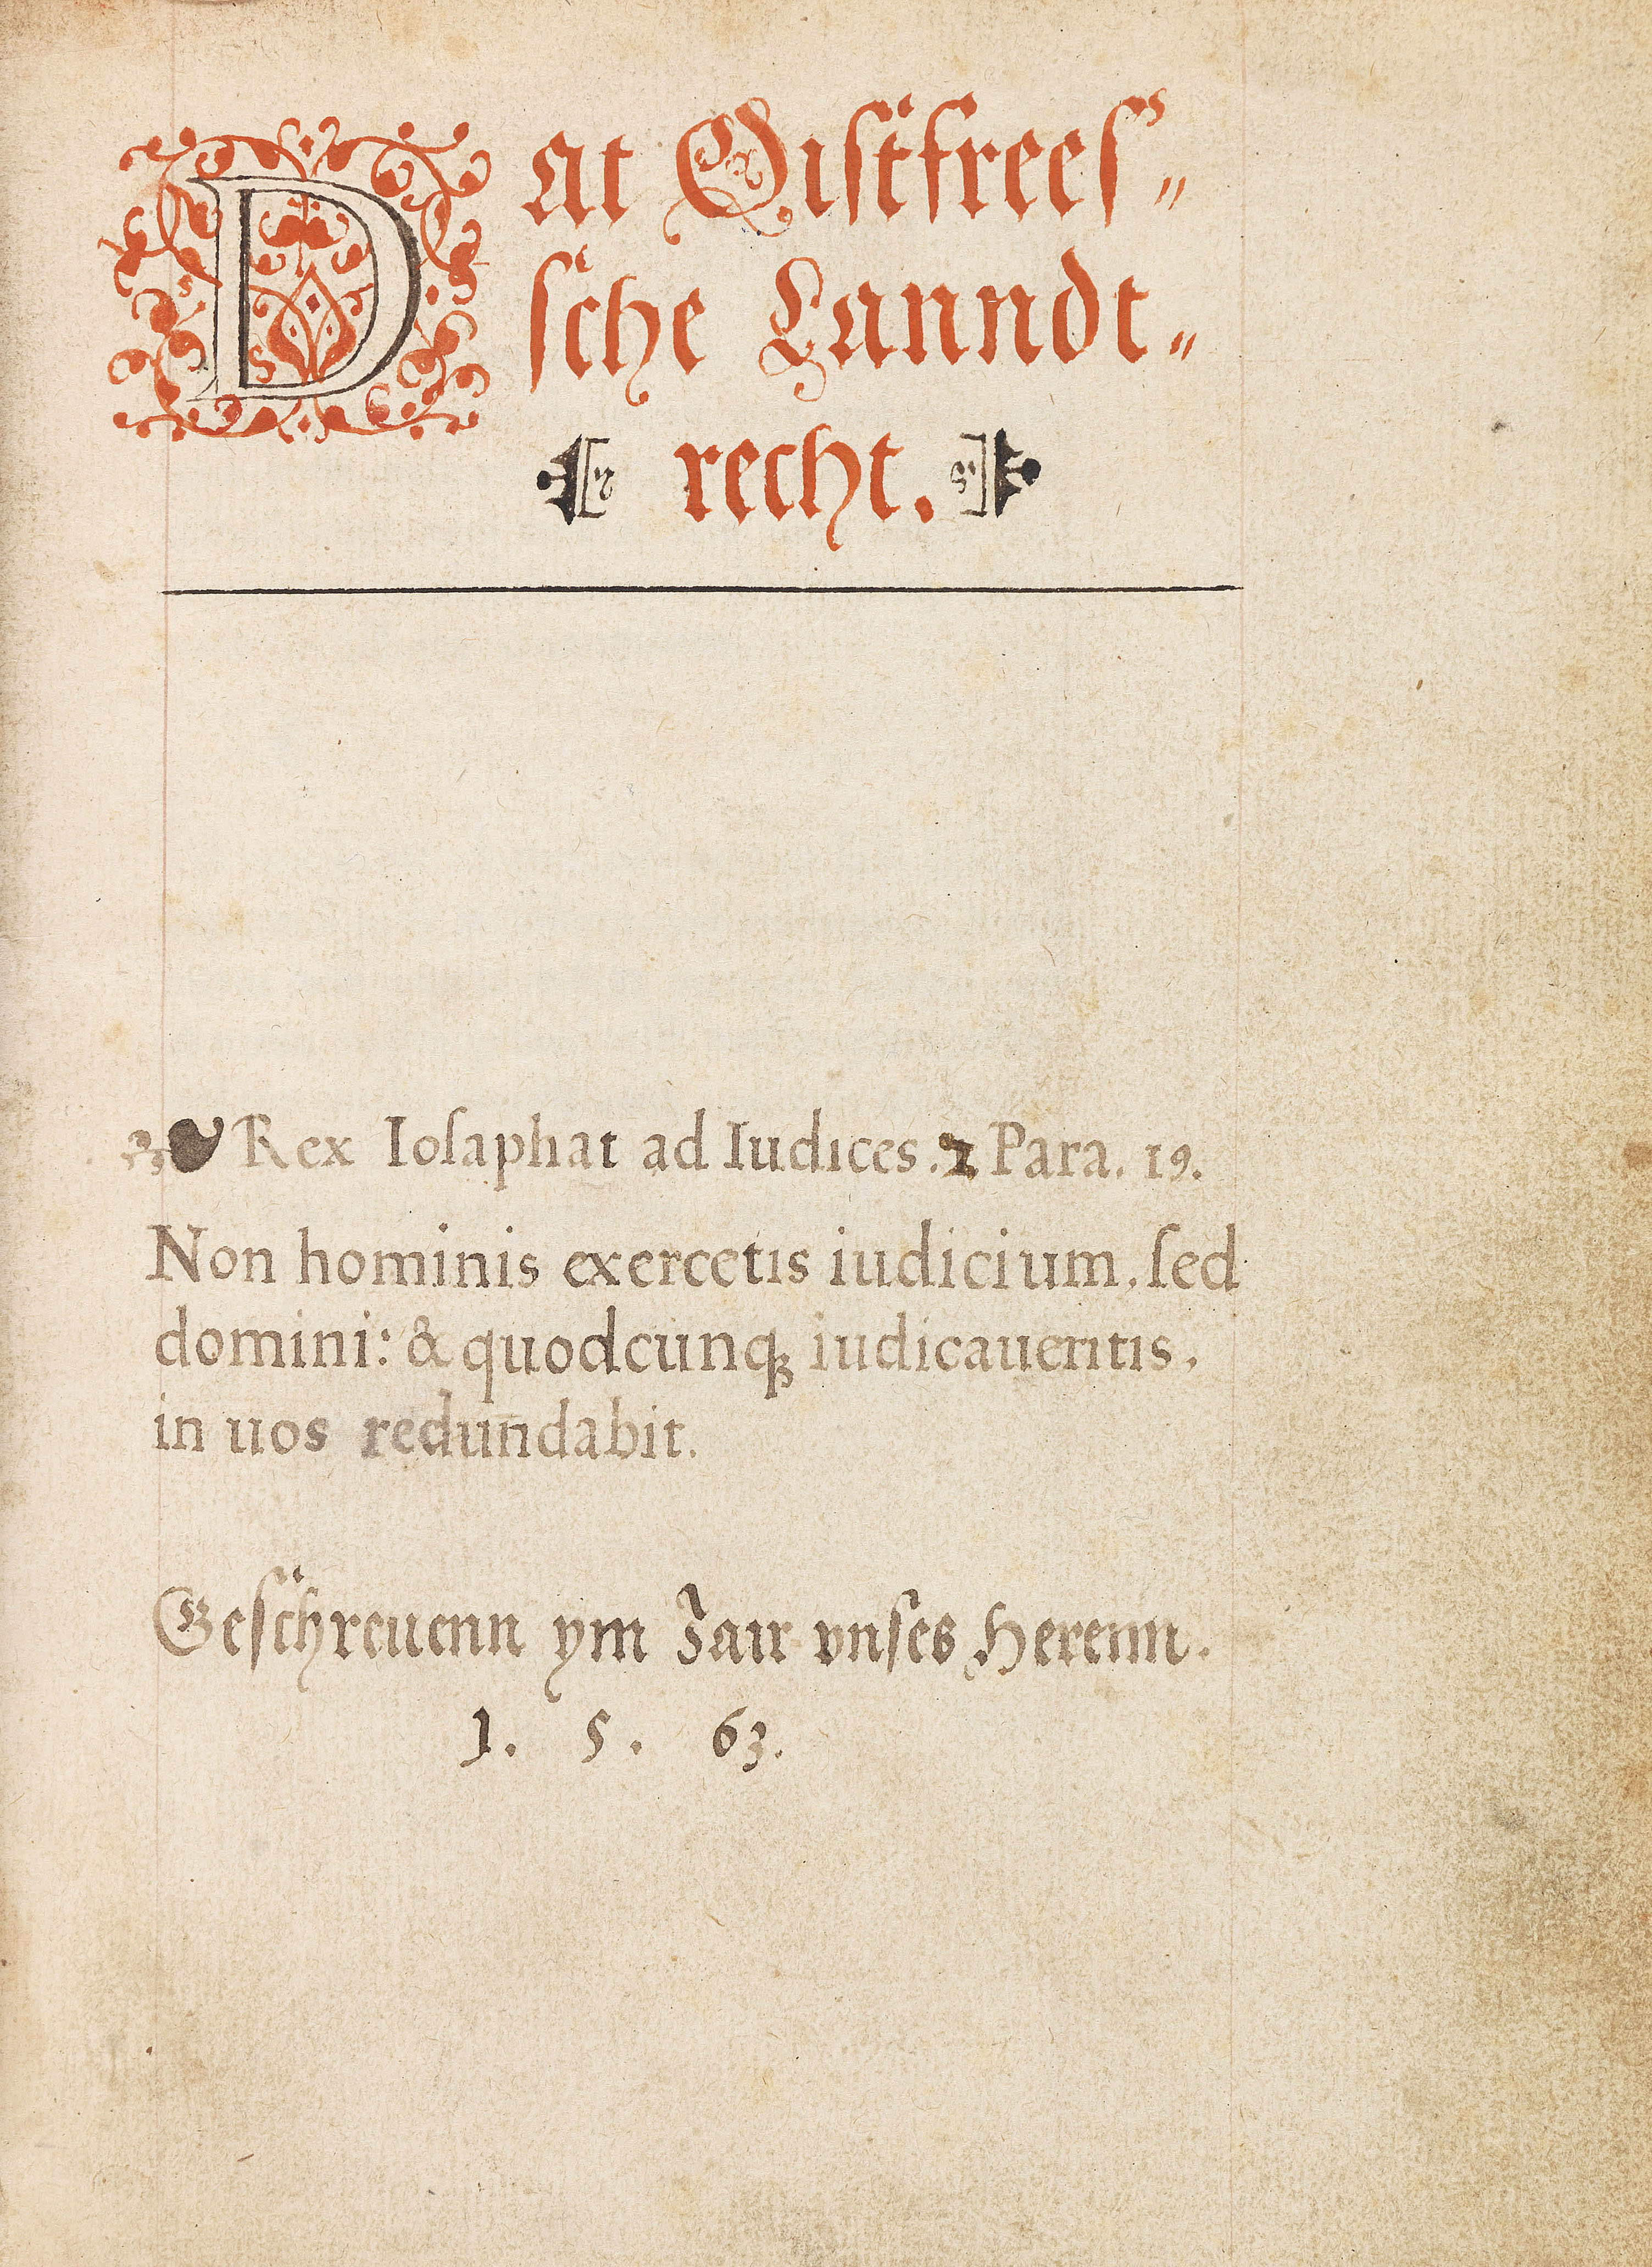 Dat Oistfrees⸗
ſche Lanndt⸗
recht.
Rex Ioſaphat ad Iudices. 2 Para. 19.
Non hominis exercetis iudicium, ſed
domini: & quodcunqꝫ iudicaueritis,
in uos redundabit.
Geſchreuenn ym Jair vnſes Herenn.
1. 5. 63.